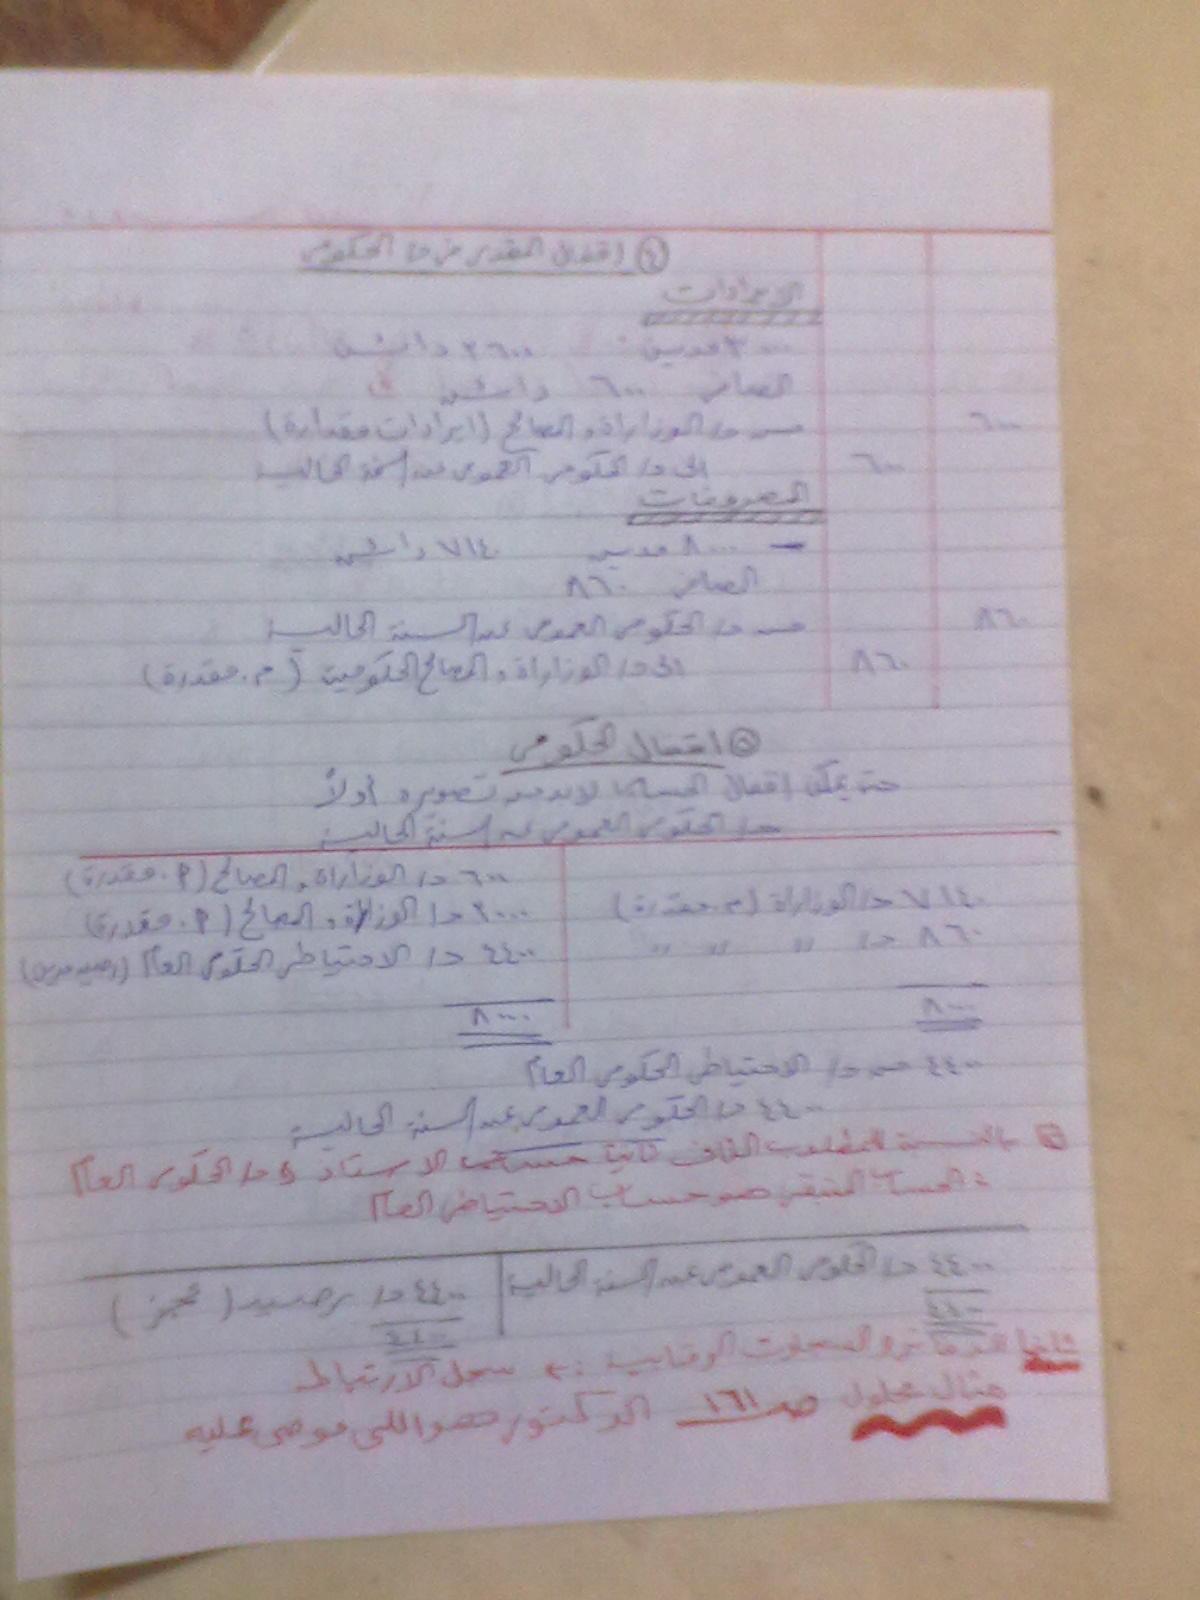 ④ إقفال المقدر من حـ/ الحكومى
الإيرادات
٣٠٠٠ مدين ٣٦٠٠ دائن
الصافى ٦٠٠ دائن
٦٠٠ من حـ/ الوزاراة والمصالح (ايرادات مقدارة)
٦٠٠ إلى حـ/ الحكومى العمومى عن السنة الحالية
المصروفات
٨٠٠٠ مدين ٧١٤٠ دائن
الصافى ٨٦٠
٨٦٠ من حـ/ الحكومى العمومى عن السنة الحالية
٨٦٠ إلى حـ/ الوزاراة والمصالح الحكومية (م. مقدرة)
⑤ اقفال الحكومى
حتى يمكن إقفال الحساب لابد من تصويره أولاً
حـ/ الحكومى العمومى عن السنة الحالية
٧١٤٠ حـ/ الوزاراة (م. مقدرة) ٦٠٠ حـ/ الوزاراة والمصالح (أ. مقدرة)
٨٦٠ حـ/ " " " ٣٠٠٠ حـ/ الوزارة والمصالح (أ. مقدرة)
٤٤٠٠ حـ/ الاحتياطى الحكومى العام (رصيد مدين)
٨٠٠٠ ٨٠٠٠
٤٤٠٠ من حـ/ الاحتياطى الحكومى العام
٤٤٠٠ حـ/ الحكومى العمومى عن السنة الحالية
بالنسبة للمطلوب الثانى ثانيا حساب الاستاذ حـ/ الحكومى العام
: الحساب المتبقى هو حساب الاحتياطى العام
٤٤٠٠ حـ/ الحكومى العمومى عن السنة الحالية ٤٤٠٠ حـ/ رصيد (عجز)
٤٤٠٠ ٤٤٠٠
ثانيا الدفاتر والسجلات الرقابية : سجل الارتباط
مثال محلول صـ ١٦١ الدكتور هو اللى موصى عليه